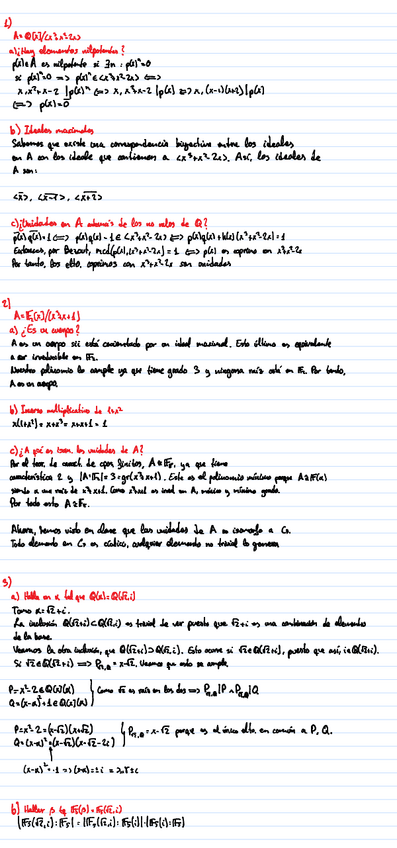 1)
A=Q[x]/<x³+x²-2x>
a) ¿Hay elementos nilpotentes?
p(x)∈A es nilpotente si ∃n: p(x)ⁿ=0
si p(x)ⁿ=0 ⟹ p(x)ⁿ∈<x³+x²-2x> ⟺
x, x²+x-2 | p(x)ⁿ ⟺ x, x²+x-2 | p(x) ⟺ x, (x-1)(x+2) | p(x)
⟺ p(x)=0
b) Ideales maximales
Sabemos que existe una correspondencia biyectiva entre los ideales
en A con los ideales que contienen a <x³+x²-2x>. Así, los ideales de
A son:
<x>, <x-1>, <x+2>
c) ¿Unidades en A además de los no nulos de Q?
p(x)q(x)=1 ⟺ p(x)q(x)-1∈<x³+x²-2x> ⟺ p(x)q(x)+h(x)(x³+x²-2x)=1
Entonces, por Bezout, mcd(p(x),(x³+x²-2x))=1 ⟺ p(x) es coprimo con x³+x²-2x
Por tanto, los elto. coprimos con x³+x²-2x son unidades
2)
A=F₂[x]/(x³+x+1)
a) ¿Es un cuerpo?
A es un cuerpo sii está cocientado por un ideal maximal. Esto último es equivalente
a ser irreducible en F₂.
Nuestro polinomio lo cumple ya que tiene grado 3 y ninguna raíz está en F₂. Por tanto,
A es un cuerpo.
b) Inverso multiplicativo de 1+x²
x(1+x²)=x+x³=x+x+1=1
c) ¿A qué es isom. las unidades de A?
Por el teor. de caract. de cpos finitos, A≅F₈, ya que tiene
característica 2 y |A:F₂|=3=gr(x³+x+1). Este es el polinomio mínimo porque A≅F(α)
siendo α una raíz de x³+x+1. Como x³+x+1 es irred en A, mónico y mínimo grado.
Por todo esto A≅F₈.
Ahora, hemos visto en clase que las unidades de A es isomorfo a C₇.
Todo elemento en C₇ es cíclico, cualquier elemento no trivial lo genera.
3)
a) Halla en α tal que Q(α)=Q(√2,i)
Tomo α=√2+i.
La inclusión Q(√2+i)⊂Q(√2,i) es trivial de ver puesto que √2+i es una combinación de elementos
de la base.
Veamos la otra inclusión, que Q(√2+i)⊃Q(√2,i). Esto ocurre si √2∈Q(√2+i), puesto que así, i∈Q(√2+i).
Si √2∈Q(√2+i) ⟹ P=x-√2. Veamos que esto se cumple.
P=x²-2∈Q(α)[x]
Q=(x-α)²+1∈Q(α)[x]
Como √2 es raíz en los dos ⟹ P|P ∧ P|Q
P=x²-2=(x-√2)(x+√2)
Q=(x-α)²=(x-√2)(x-√2-2i)
P=x-√2 porque es el único elto. en común a P, Q.
(x-α)²=-1 ⟹ (x-α)=±i
b) Hallar β tq F₅(β)=F₅(√2,i)
|F₅(√2,i):F₅|=|F₅(√2,i):F₅(i)|·|F₅(i):F₅|